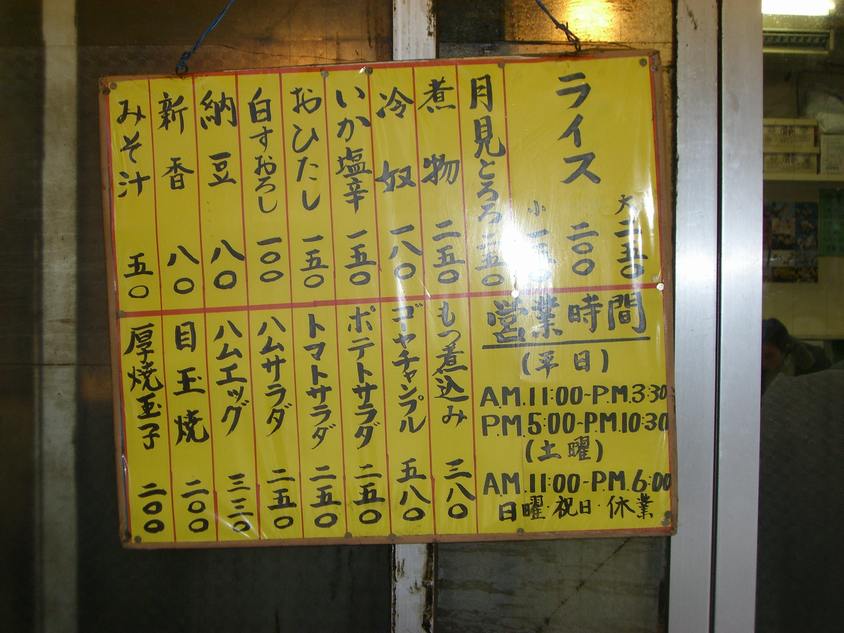 ライス
大 二五〇
二〇〇
小 一五〇
月見とろろ
煮物 二五〇
冷奴 一八〇
いか塩辛 一五〇
おひたし 一五〇
白すおろし 一〇〇
納豆 八〇
新香 八〇
みそ汁 五〇
営業時間
(平日)
A.M.11:00-P.M.3:30
PM.5:00-PM.10:30
(土曜)
AM.11:00-PM.6:00
日曜・祝日・休業
もつ煮込み 三八〇
ゴーヤチャンプル 五八〇
ポテトサラダ 二五〇
トマトサラダ 二五〇
ハムサラダ 二五〇
ハムエッグ 三三〇
目玉焼 二〇〇
厚焼玉子 二〇〇